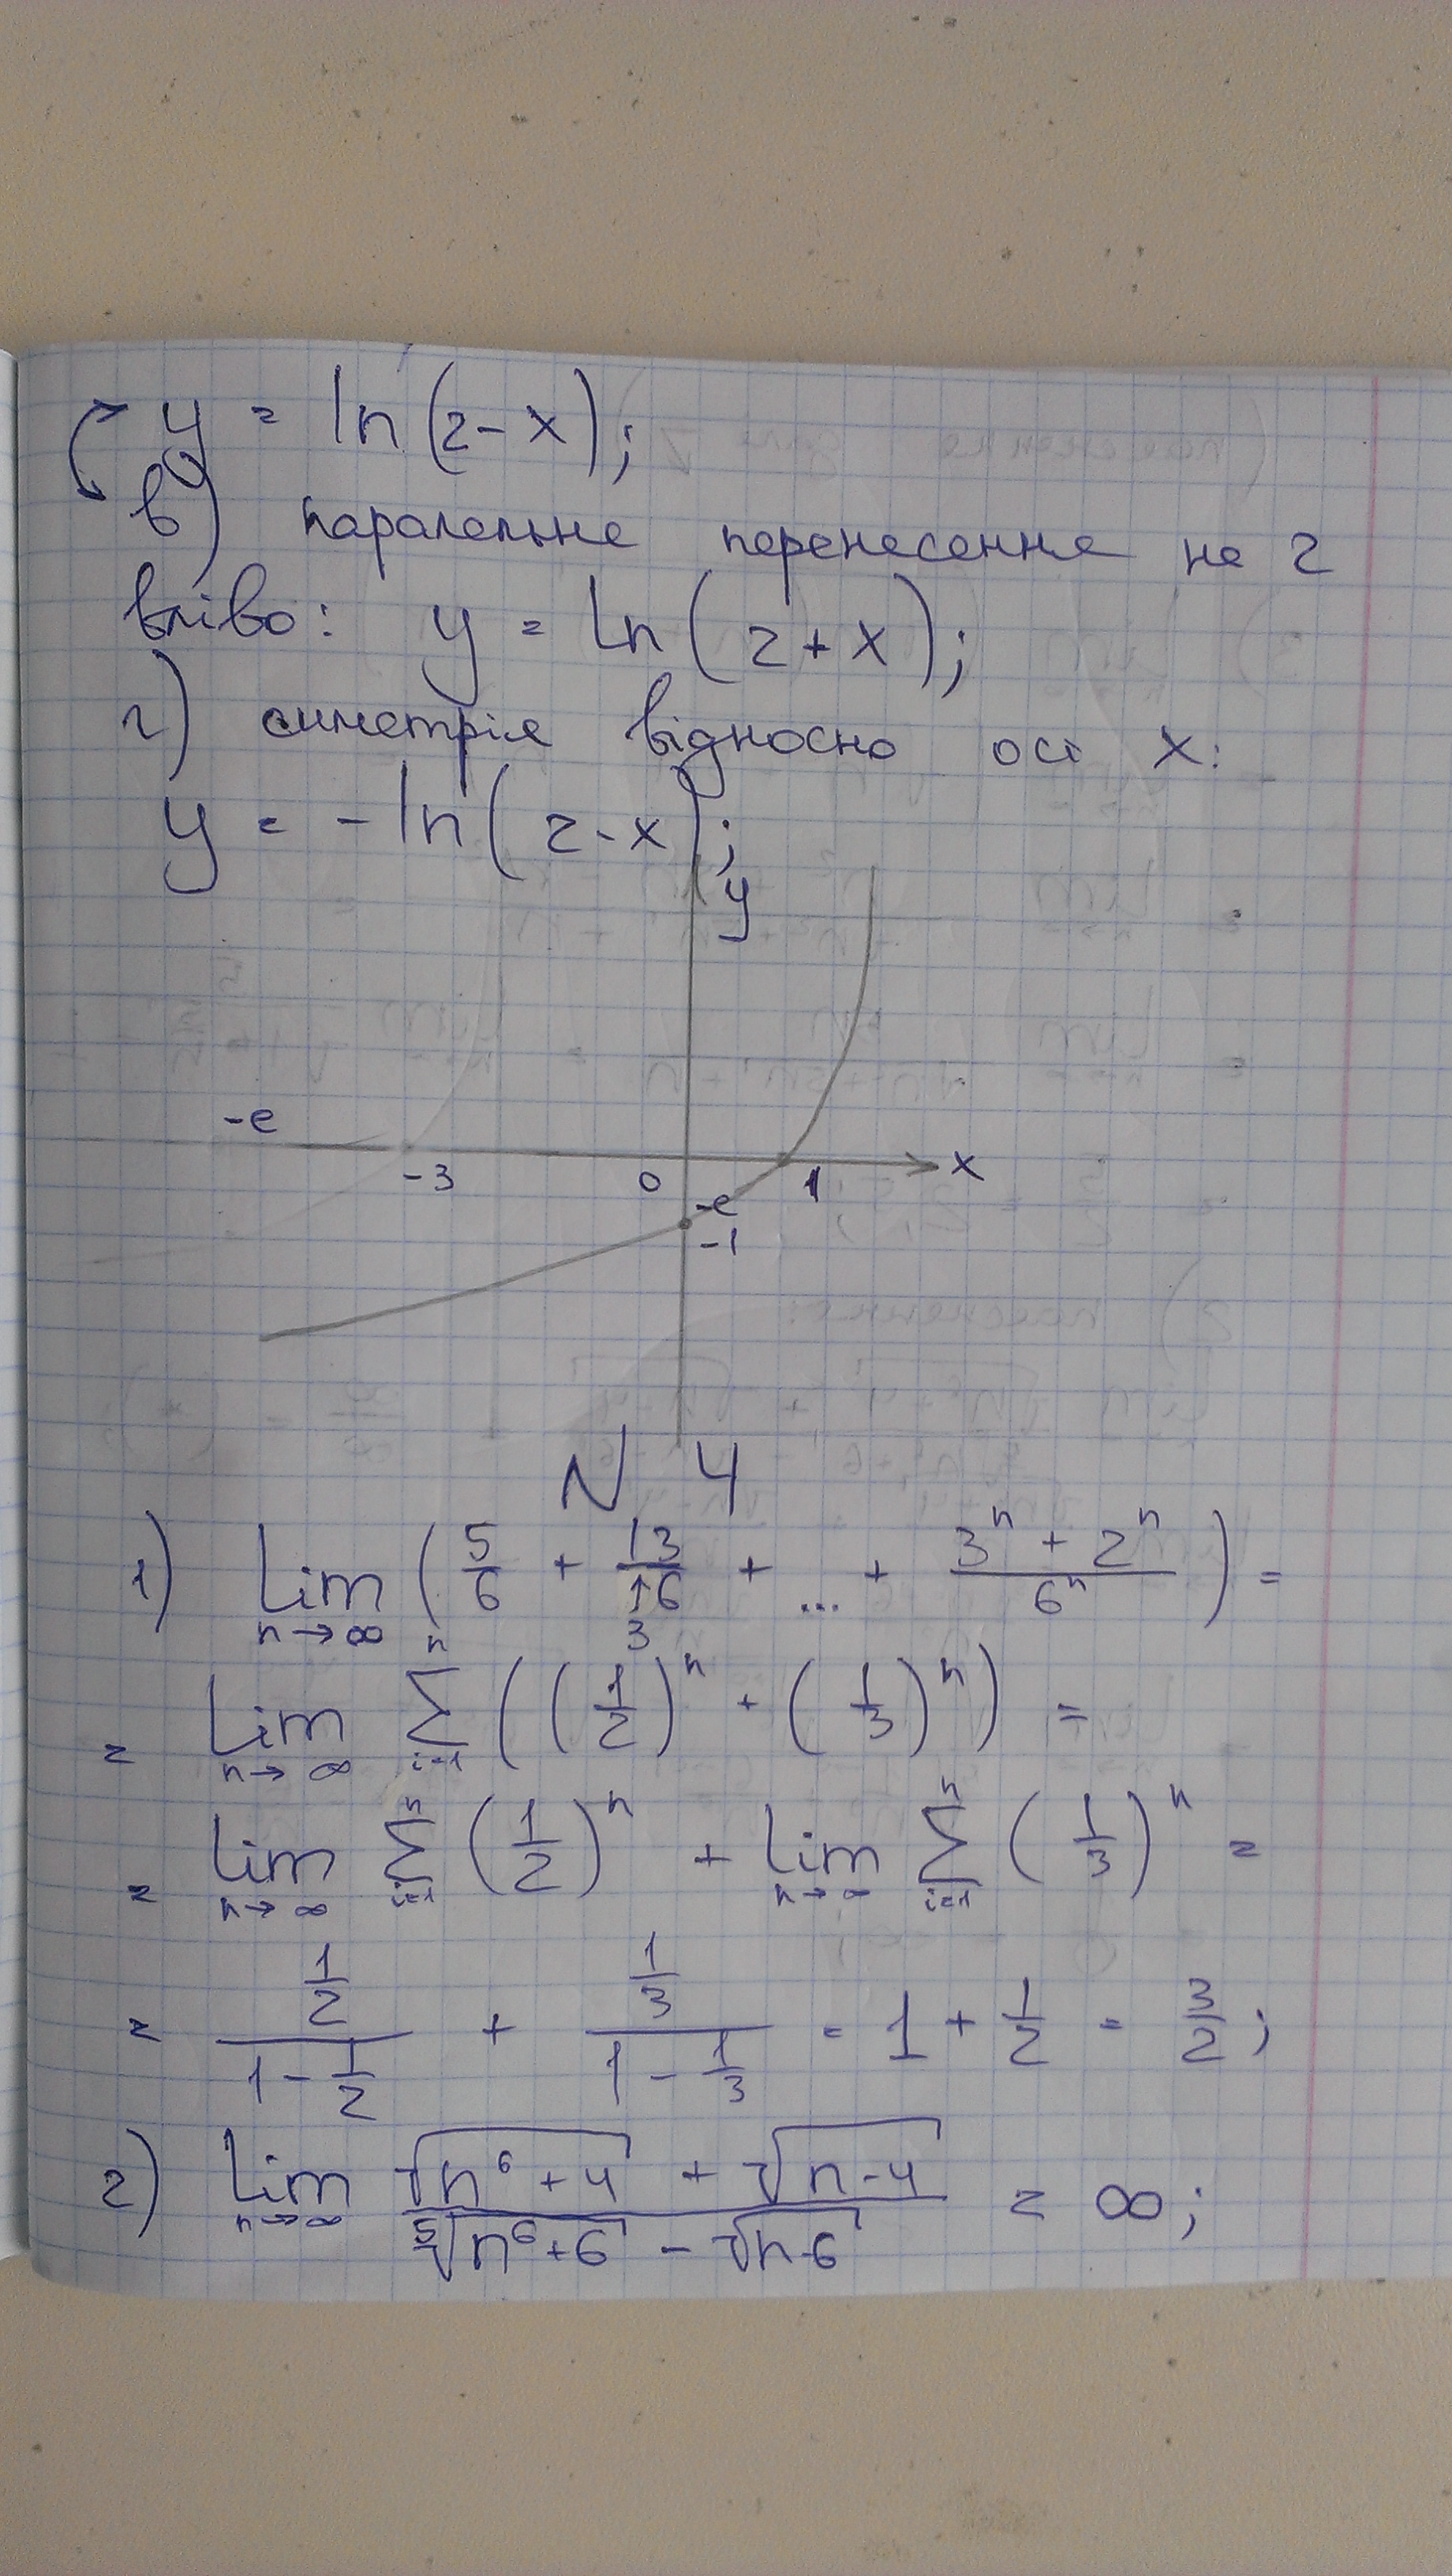 y = ln(2-x);
в) паралельне перенесення на 2
вліво: y = ln(2+x);
г) симетрія відносно осі x:
y = -ln(2-x);
y
-e
-3 0 1 x
-e
-1
N 4
1) lim n→∞ (5/6 + 13/36 + ... + (3^n + 2^n)/6^n) =
= lim n→∞ ∑ i=1 n ((1/2)^n + (1/3)^n) =
= lim n→∞ ∑ i=1 n (1/2)^n + lim n→∞ ∑ i=1 n (1/3)^n =
= (1/2)/(1-1/2) + (1/3)/(1-1/3) = 1 + 1/2 = 3/2;
2) lim n→∞ (√(n^6+4) + √(n-4))/(⁵√(n^6+6) - √(n-6)) = ∞;